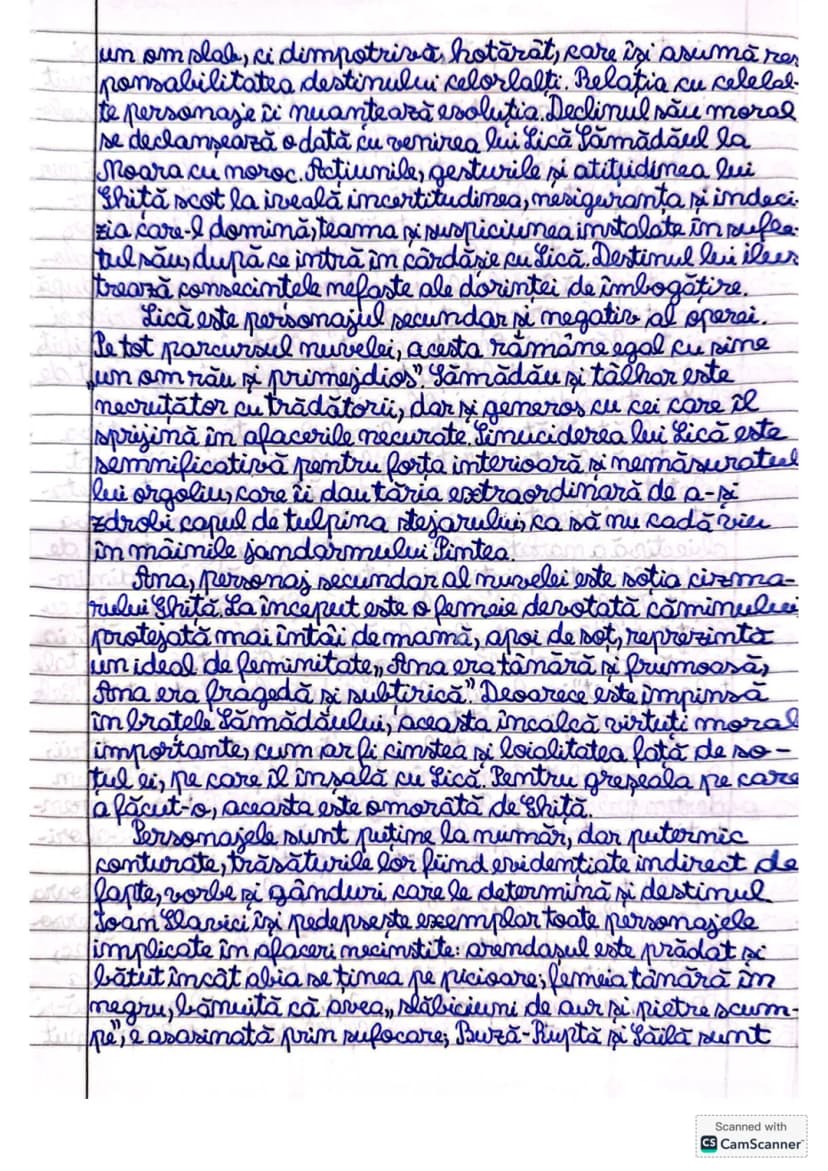 un om slab, ci dimpotrivă, hotărât, care își asumă res
ponsabilitatea destinului celorlalți. Relația cu celelal-
te personaje îi nuantează evoluția. Declinul său moral
se declanșează o dată cu venirea lui Lică Sămădăul la
Moara cu noroc. Acțiunile, gesturile și atitudinea lui
Ghiță scot la iveală incertitudinea, nesiguranța și indeci-
zia care-l domină, teama și suspiciunea instalate în sufle-
tul său, după ce intră în cârdășie cu Lică. Destinul lui ilus
trează consecințele nefaste ale dorinței de îmbogățire.
Lică este personajul secundar și negativ al operei.
Pe tot parcursul nuvelei, acesta rămâne egal cu sine
„un om rău și primejdios". Sămădău și tâlhar este
necruțător cu trădătorii, dar și generos cu cei care îl
sprijină în afacerile necurate. Sinuciderea lui Lică este
semnificativă pentru forța interioară și nemăsuratul
lui orgoliu, care îi dau tăria extraordinară de a-și
zdrobi capul de tulpina stejarului, ca să nu cadă viu
în mâinile jandarmului Pintea.
Ana, personaj secundar al nuvelei este soția cizma-
rului Ghiță. La început este o femeie devotată căminului
protejată mai întâi de mamă, apoi de soț, reprezintă
un ideal de feminitate „Ana era tânără și frumoasă,
Ana era fragedă și subțirică." Deoarece este împinsă
în brațele Sămădăului, aceasta încalcă virtuți moral
importante, cum ar fi cinstea și loialitatea față de so-
țul ei, pe care îl înșală cu Lică. Pentru greșeala pe care
a făcut-o, aceasta este omorâtă de Ghiță.
Personajele sunt puține la număr, dar puternic
conturate, trăsăturile lor fiind evidențiate indirect de
fapte, vorbe și gânduri care le determină și destinul
Ioan Slavici își pedepsește exemplar toate personajele
implicate în afaceri necinstite: arendașul este prădat și
bătut încât abia se ținea pe picioare; femeia tânără în
negru, bănuită că avea „slăbiciuni de aur și pietre scum-
pe", e asasinată prin sufocare; Buză-Ruptă și Săilă sunt
Scanned with
CS CamScanner